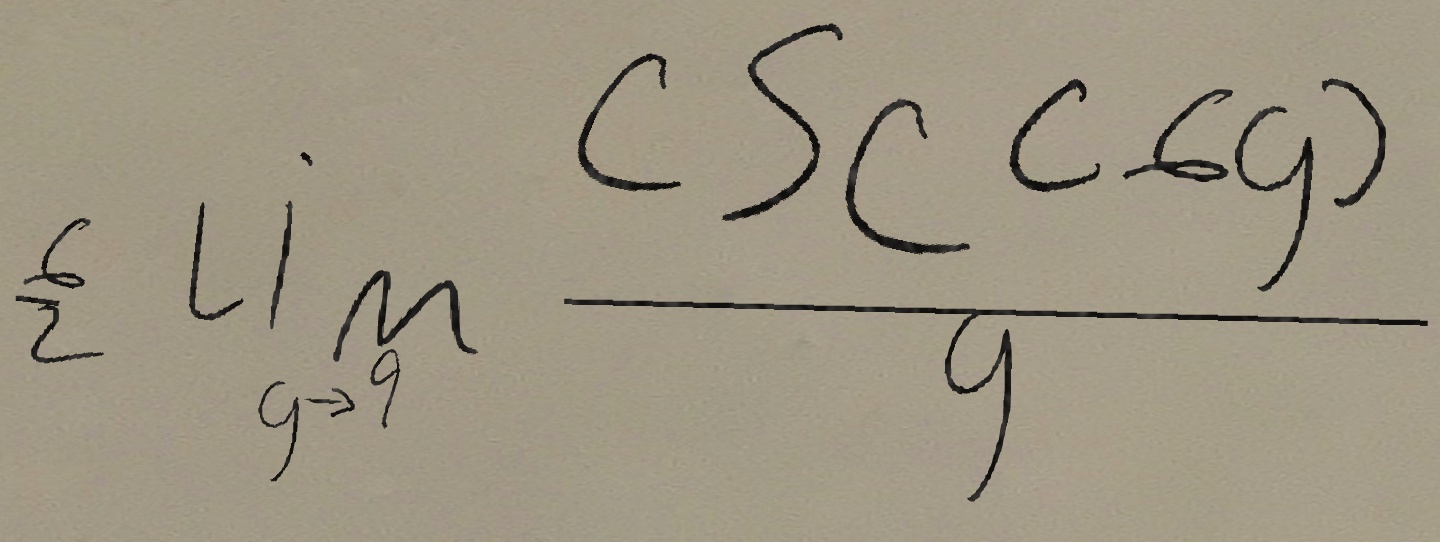 \frac{6}{2} \lim_{g \to 9} \frac{\csc(-6g)}{g}